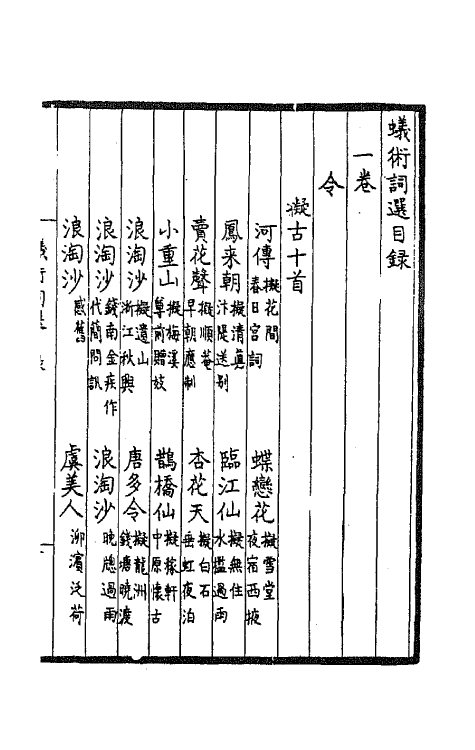 蟻術詞選目錄
一卷
令
擬古十首
河傳 擬花間 春日宮詞
蝶戀花 擬雪堂 夜宿西掖
鳳來朝 擬清真 汴隄送別
臨江仙 擬無住 水檻過雨
賣花聲 擬順菴 早朝應制
杏花天 擬白石 垂虹夜泊
小重山 擬梅溪 尊前贈妓
鵲橋仙 擬稼軒 中原懷古
浪淘沙 擬遺山 浙江秋興
唐多令 擬龍洲 錢塘曉渡
浪淘沙 錢南金疾作 代簡問訊
浪淘沙 曉牕過雨
浪淘沙 感舊
虞美人 泖濱泛荷